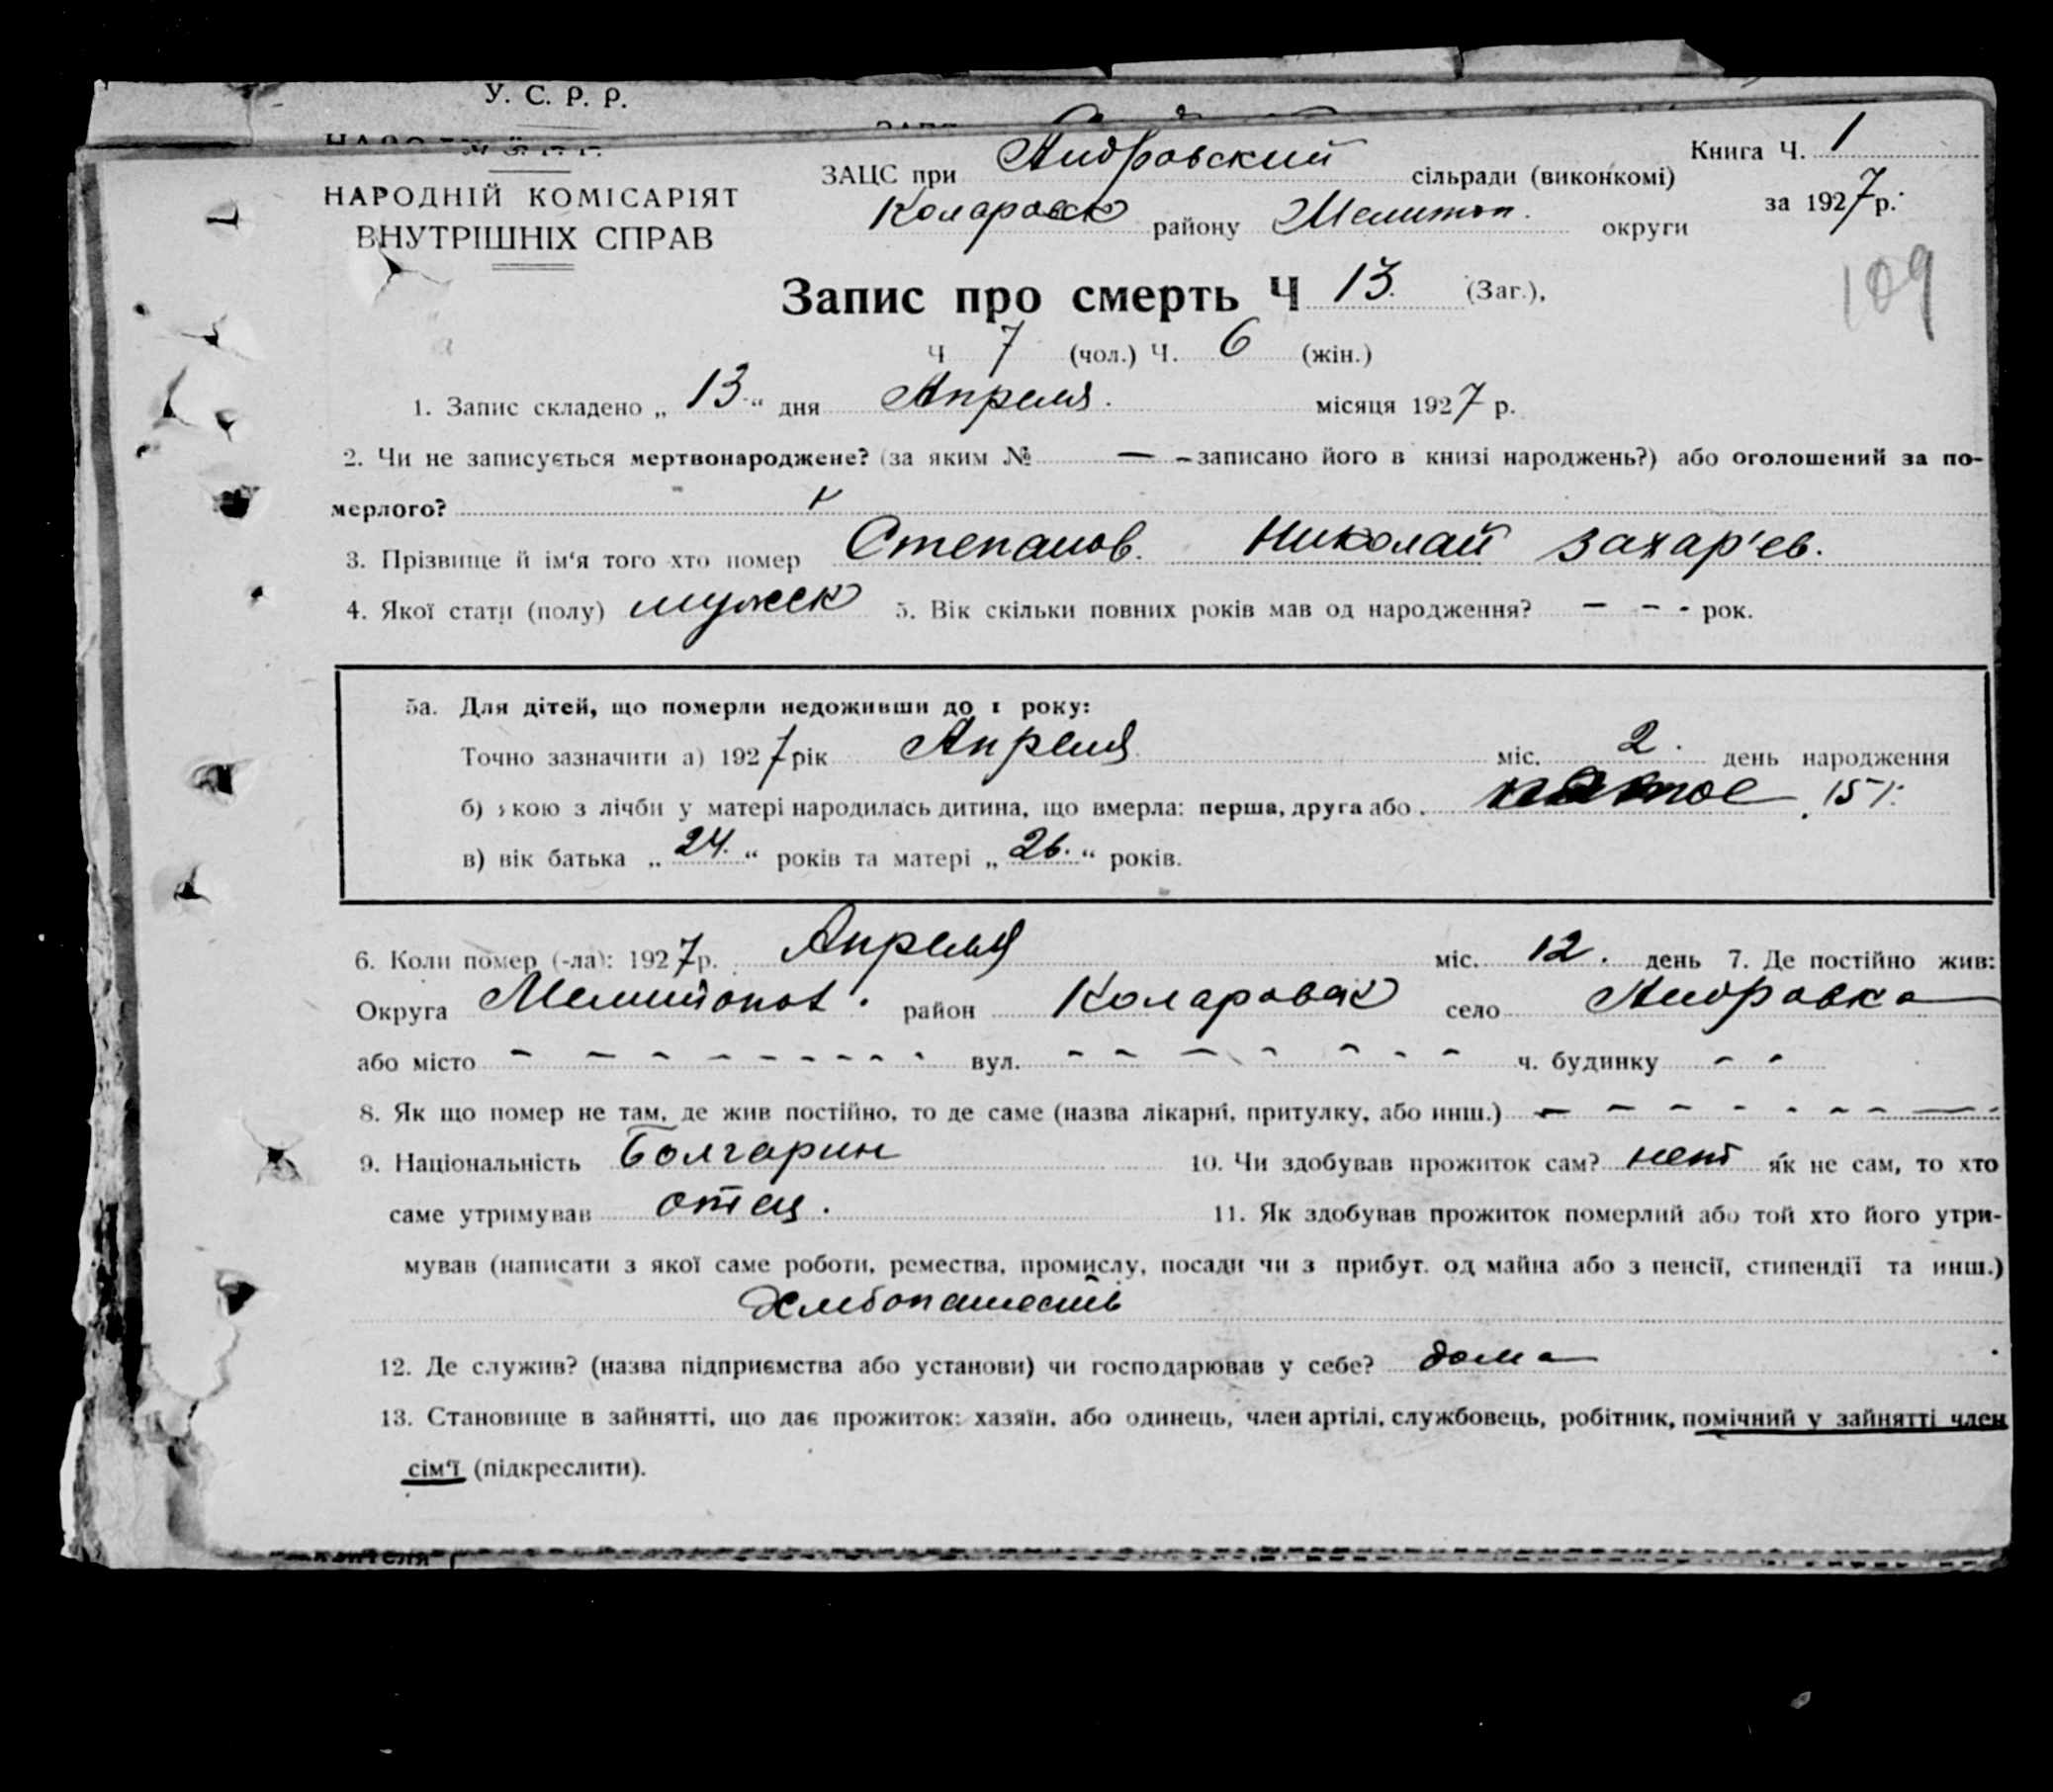 У. С. Р. Р.
НАРОДНІЙ КОМІСАРІЯТ
ВНУТРІШНІХ СПРАВ
ЗАЦС при Андровский сільради (виконкомі)
Коларовск району Мелитоп. округи
Книга Ч. 1
за 1927 р.
109
Запис про смерть Ч 13. (Заг.),
Ч 7 (чол.) Ч. 6 (жін.)
1. Запис складено „ 13 “ дня Апреля. місяця 1927 р.
2. Чи не записується мертвонароджене? (за яким № — – записано його в книзі народжень?) або оголошений за по-
мерлого?
3. Прізвище й ім‘я того хто помер Степанов. Николай Захар'ев.
4. Якої стати (полу) мужск 5. Вік скільки повних років мав од народження? – – - рок.
5а. Для дітей, що померли недоживши до 1 року:
Точно зазначити а) 1927 рік Апреля міс. 2. день народження
б) якою з лічби у матері народилась дитина, що вмерла: перша, друга або
в) вік батька „ 24. “ років та матері „ 26. “ років.
6. Коли помер (-ла): 1927 р. Апреля міс. 12. день 7. Де постійно жив:
Округа Мелитопол. район Коларовск село Андровка
або місто - - - - - - - - - вул. - - - - - - - ч. будинку - -
8. Як що помер не там, де жив постійно, то де саме (назва лікарні, притулку, або инш.) - - - - - - - - -
9. Національність болгарин 10. Чи здобував прожиток сам? нет як не сам, то хто
саме утримував отец. 11. Як здобував прожиток померлий або той хто його утри-
мував (написати з якої саме роботи, ремества, промислу, посади чи з прибут. од майна або з пенсії, стипендії та инш.)
Хлебопашеств
12. Де служив? (назва підприємства або установи) чи господарював у себе? дома
13. Становище в зайнятті, що дає прожиток: хазяїн, або одинець, член артілі, службовець, робітник, помічний у зайнятті член
сім‘ї (підкреслити).